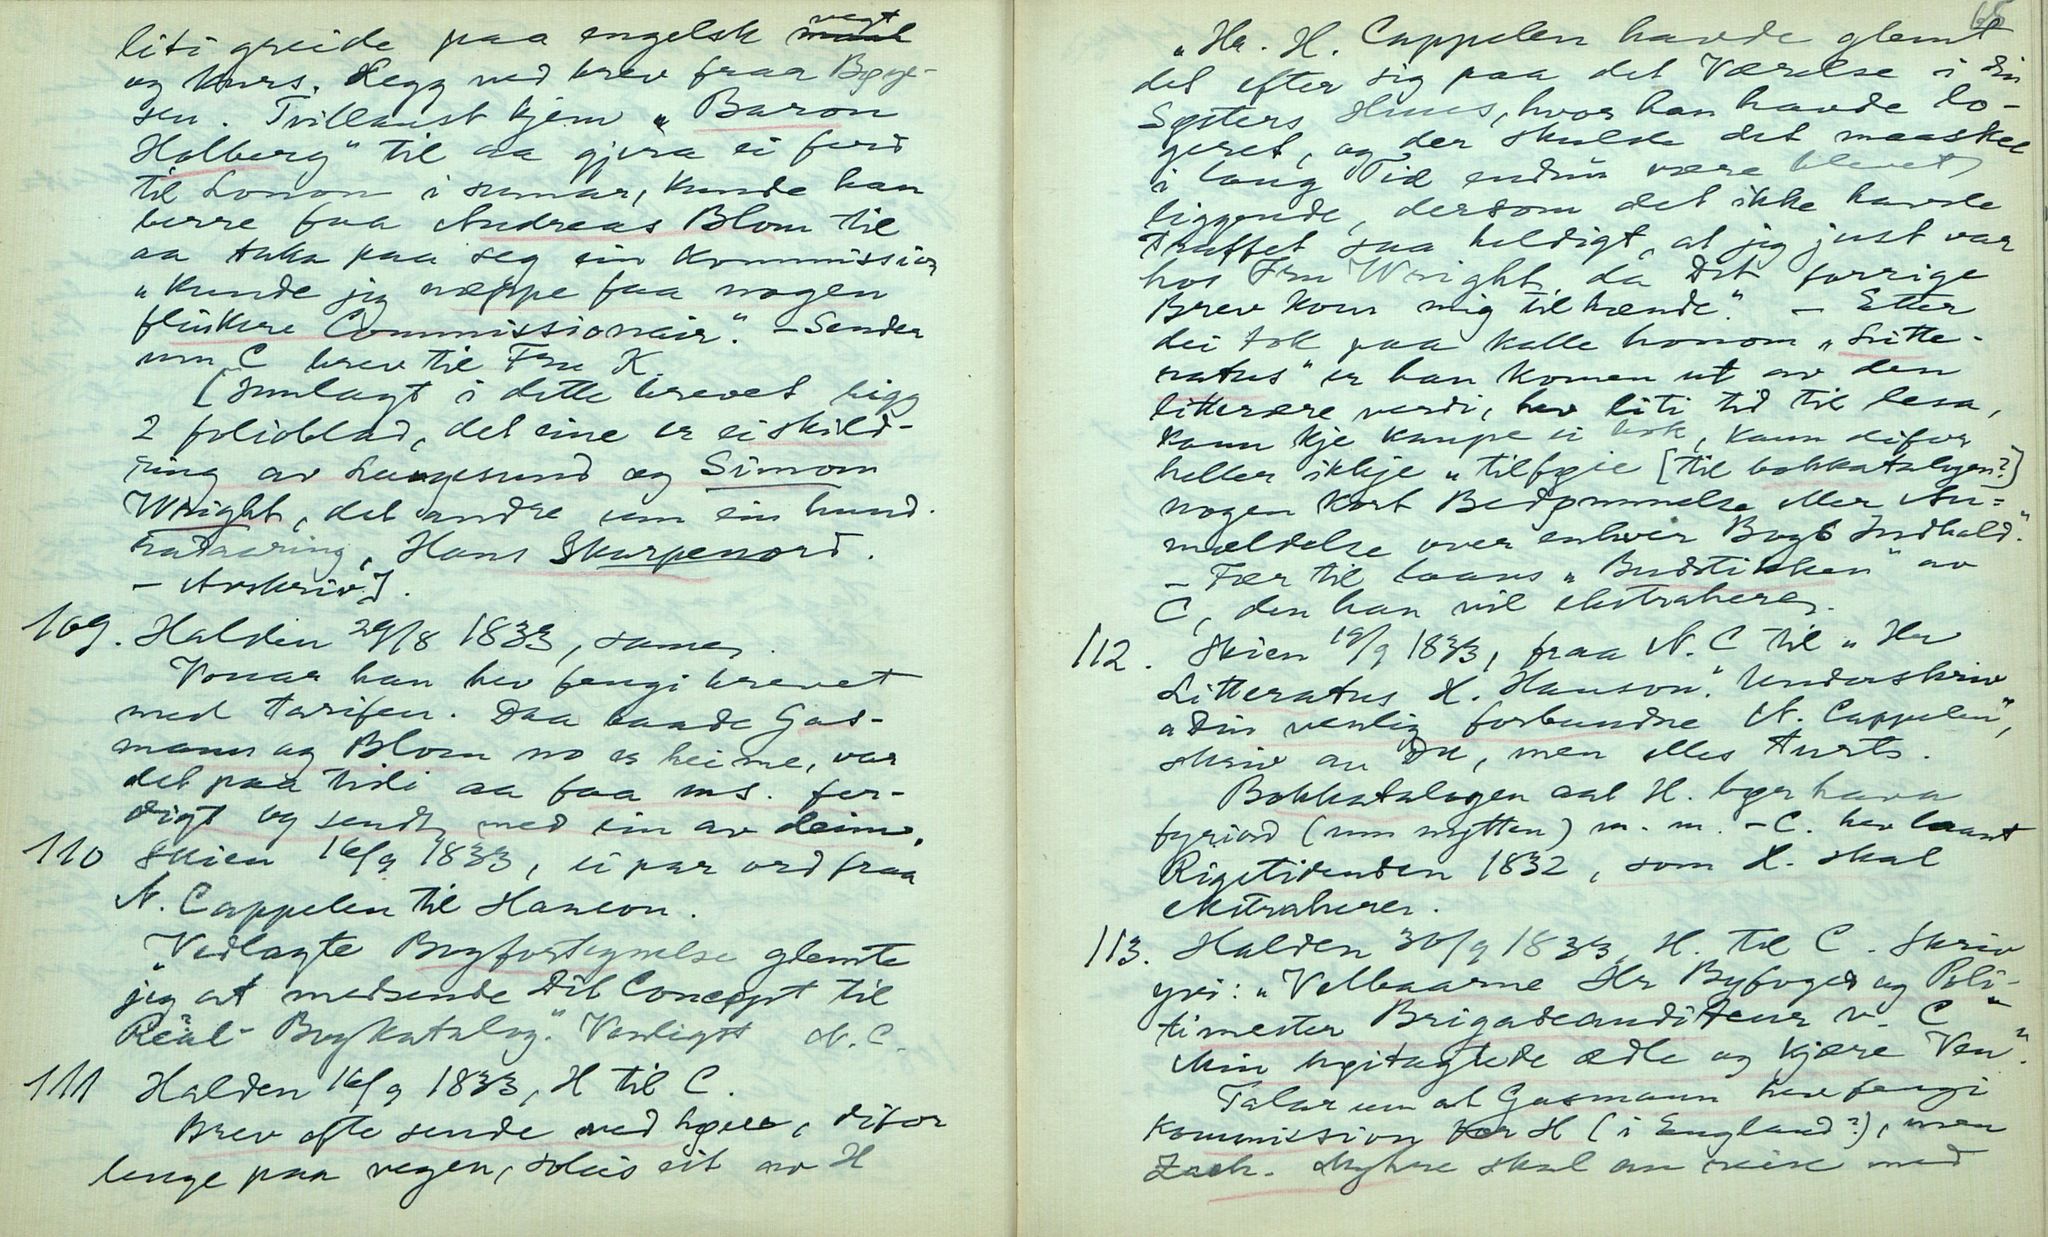 liti greide paa engelsk vegt
og kurs. Legg ved brev fraa Bøye-
sen. Tvillaust kjem „Baron
Holberg" til aa gjera ei ferd
til London i sumar, kunde han
berre faa Andreas Blom til
aa taka paa seg ein Kommission
„kunde jeg næppe faa nogen
flinkere Commissionair". – Sender
um C brev til Fru K.
[Innlagt i dette brevet ligg
2 folioblad, det eine er ei skild-
ring av Langesund og Simon
Wright, det andre um ein hund.
Hans Skarpenord.
– Avskriv.].
109. Halden 29/8 1833, same.
Vonar han hev fengi brevet
med tarifen. Daa baade Gas-
mann og Blom no er heime, var
det paa tidi aa faa ms. fer-
digt og sendt med ein av deim.
110 Skien 16/9 1833, ei par ord fraa
N. Cappelen til Hanson.
„Vedlagte Bogfortegnelse glemte
jeg at medsende Dit Concept til
Real-Bogkatalog". Venligst N. C.
111 Halden 16/9 1833, H til C.
Brev ofte sende med høve, difor
lenge paa vegen, soleis eit av H
68
„Hr. H. Cappelen havde glemt
det efter sig paa det Værelse i din
Søsters Huus, hvor han havde lo-
geret, og der skulde det maaskee
i lang Tid endnu være blevet
liggende, dersom det ikke havde
truffet saa heldigt, at jeg just var
hos Fru Wright da Dit forrige
Brev kom mig tilhænde". – Etter
dei tok paa kalle honom „Litte-
ratus" er han komen ut av den
litterære verdi, hev liti tid til lesa,
kann kje kaupe ei bok, kann difor
heller ikkje „tilføie [til bokkatalogen?]
nogen kort Bedømmelse eller An-
mældelse over enhver Bogs Indhold".
– Fær til laans „Budstikken" av
C, den han vil ekstraherer.
112. Skien 19/9 1833, fraa N. C til „Hr
Litteratus H. Hanson". Underskriv
„Din venlig forbundne N. Cappelen",
skriv au Du, men elles turt.
Bokkatalogen aat H. bør hava
fyriord (um nytten) m. m. – C. hev laant
Rigstidenden 1832, som H. skal
ekstraherer.
113. Halden 30/9 1833, H. til C. Skriv
yvi: „Velbaarne Hr Byfoged og Poli-
timester Brigadeauditeur v. C"
„Min høitagtede ædle og kjære Ven".
Talar um at Gasmann hev fengi
kommission for H (i England?), men
Zach. Myhre skal au reise med